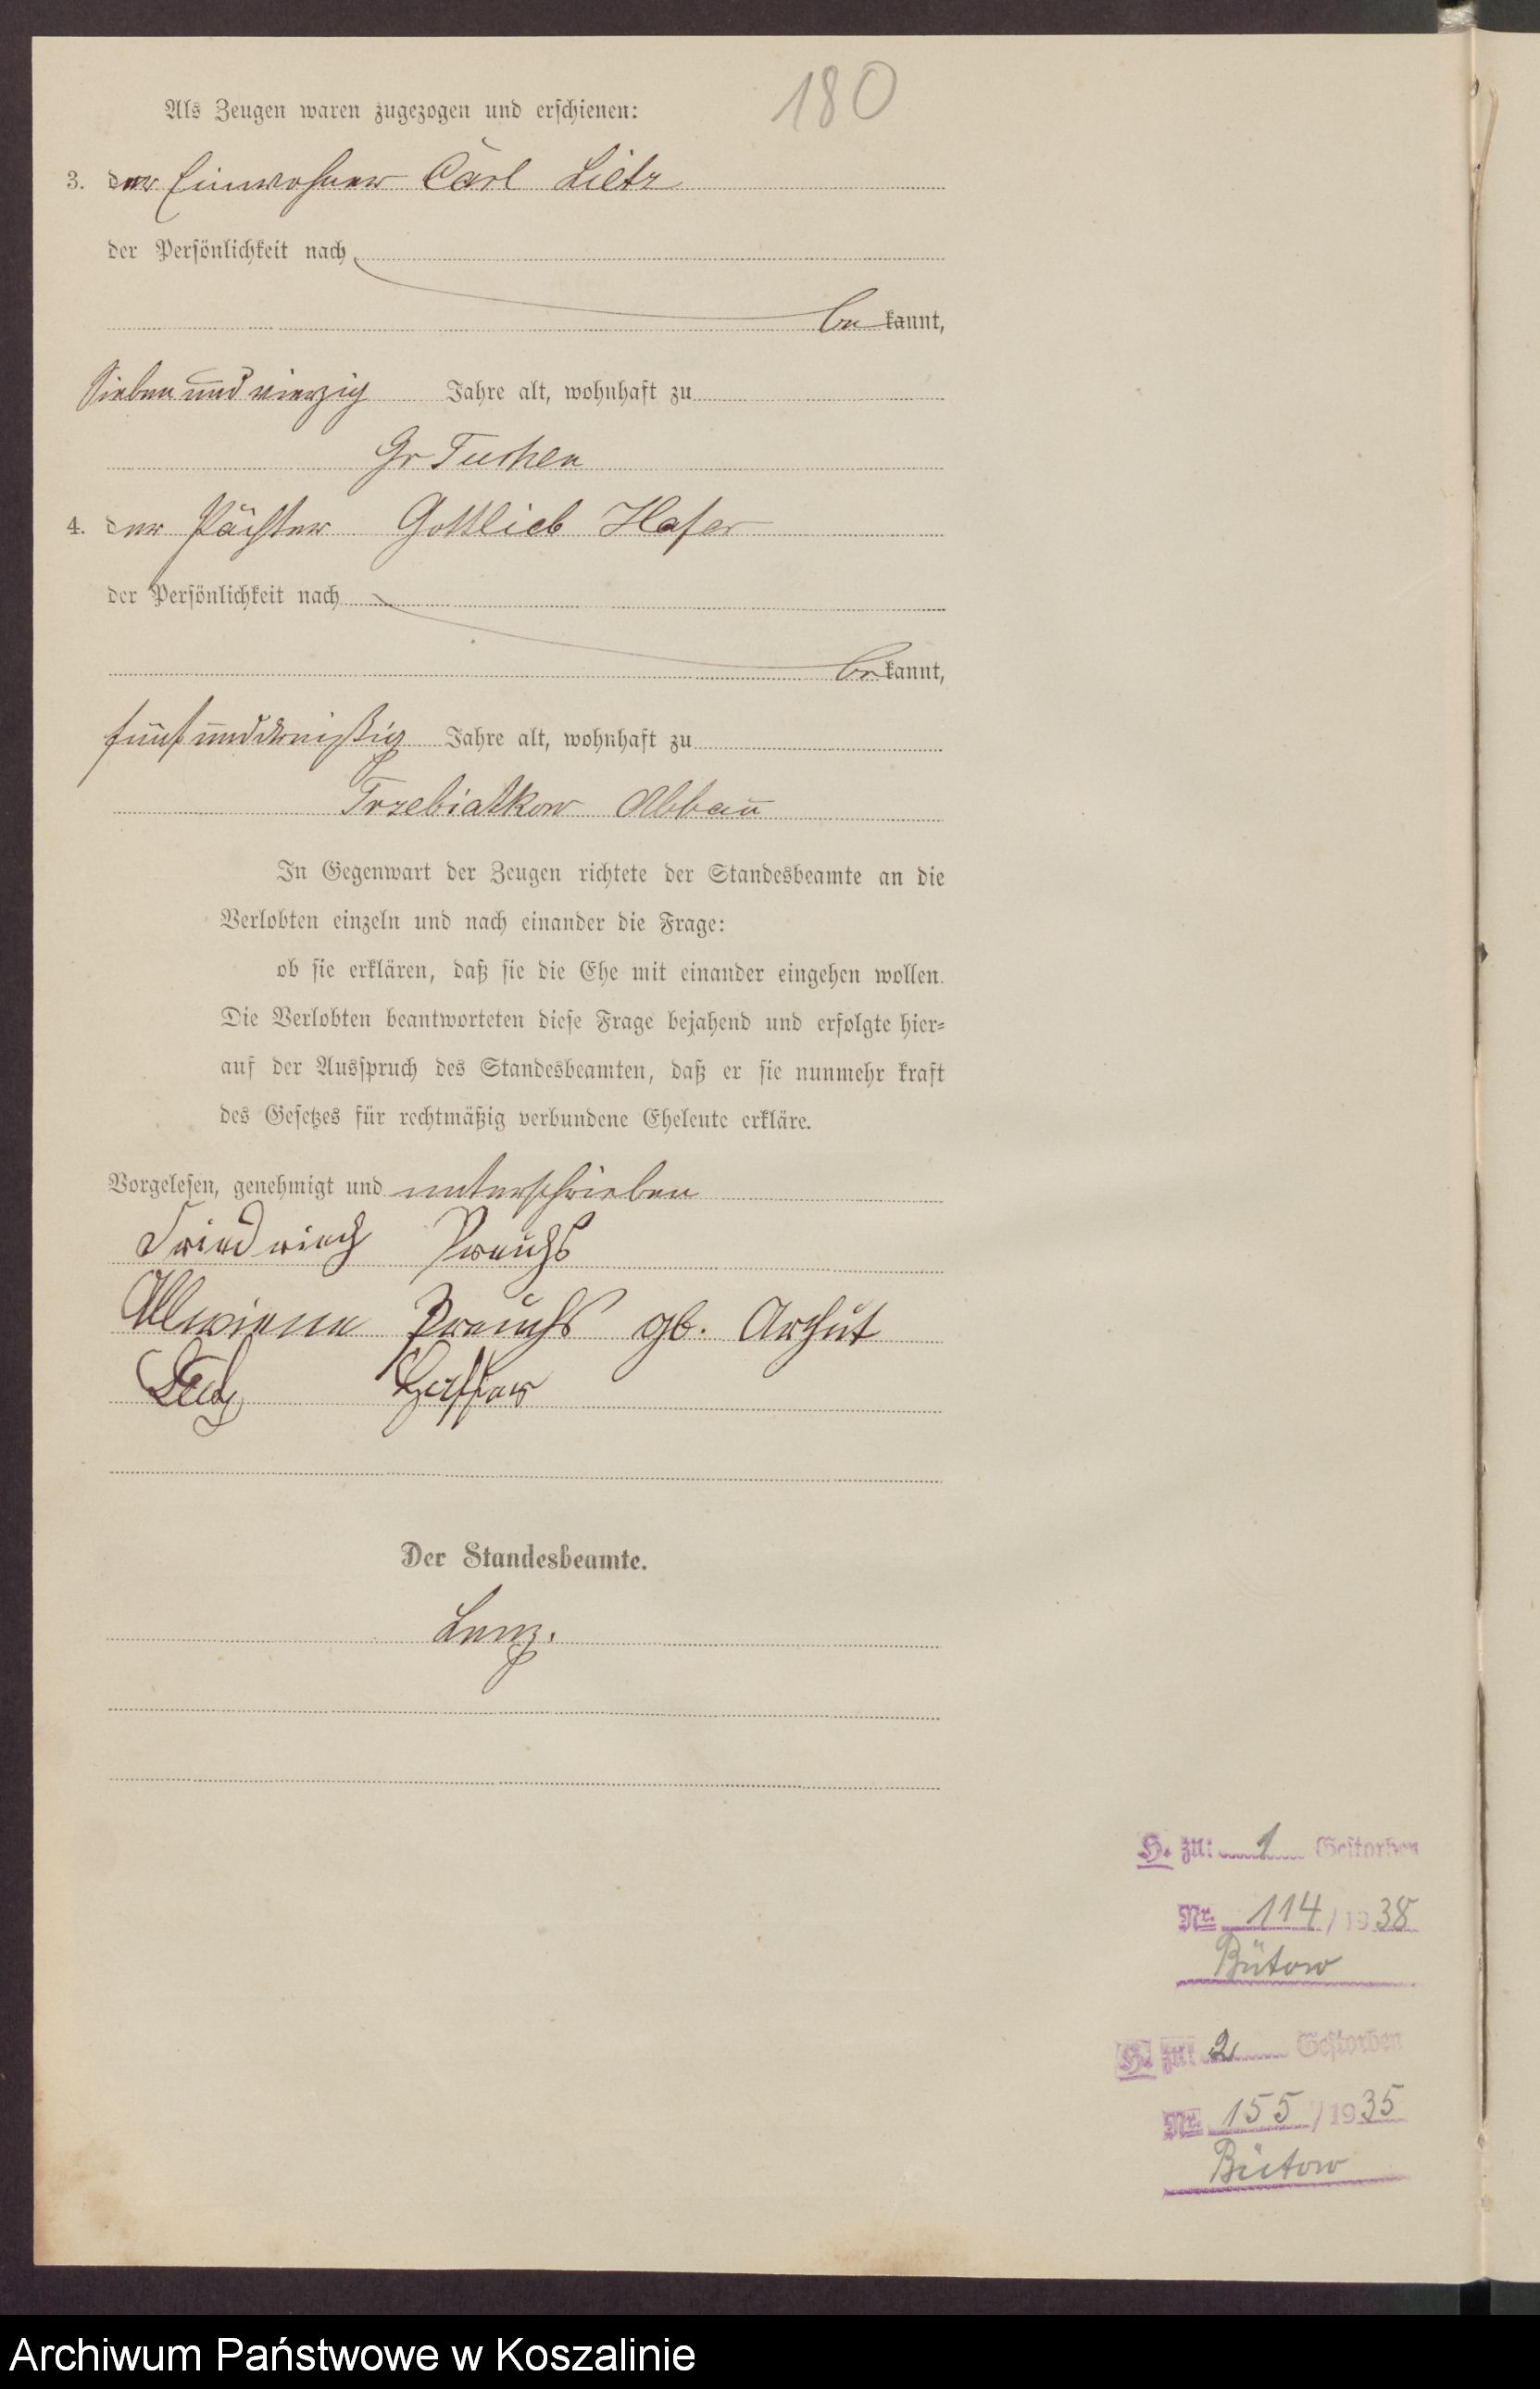 180
Als Zeugen waren zugezogen und erschienen:
3. der Einwohner Carl Lietz
der Persönlichkeit nach
be kannt,
sieben und vierzig Jahre alt, wohnhaft zu
Gr Tuchen
4. der Pächter Gottlieb Hafer
der Persönlichkeit nach
be kannt,
fünf und dreißig Jahre alt, wohnhaft zu
Trzebiatkow Abbau
In Gegenwart der Zeugen richtete der Standesbeamte an die
Verlobten einzeln und nach einander die Frage:
ob sie erklären, daß sie die Ehe mit einander eingehen wollen.
Die Verlobten beantworteten diese Frage bejahend und erfolgte hier-
auf der Ausspruch des Standesbeamten, daß er sie nunmehr kraft
des Gesetzes für rechtmäßig verbundene Eheleute erkläre.
Vorgelesen, genehmigt und unterschrieben
Friedrich Preuchs
Allwiene Preuchs gb. Arhut
Der Standesbeamte.
Lenz.
H. zu: 1 Gestorben
Nr. 114 / 1938
Bütow
H. zu: 2 Gestorben
Nr. 155 / 1935
Bütow
Archiwum Państwowe w Koszalinie